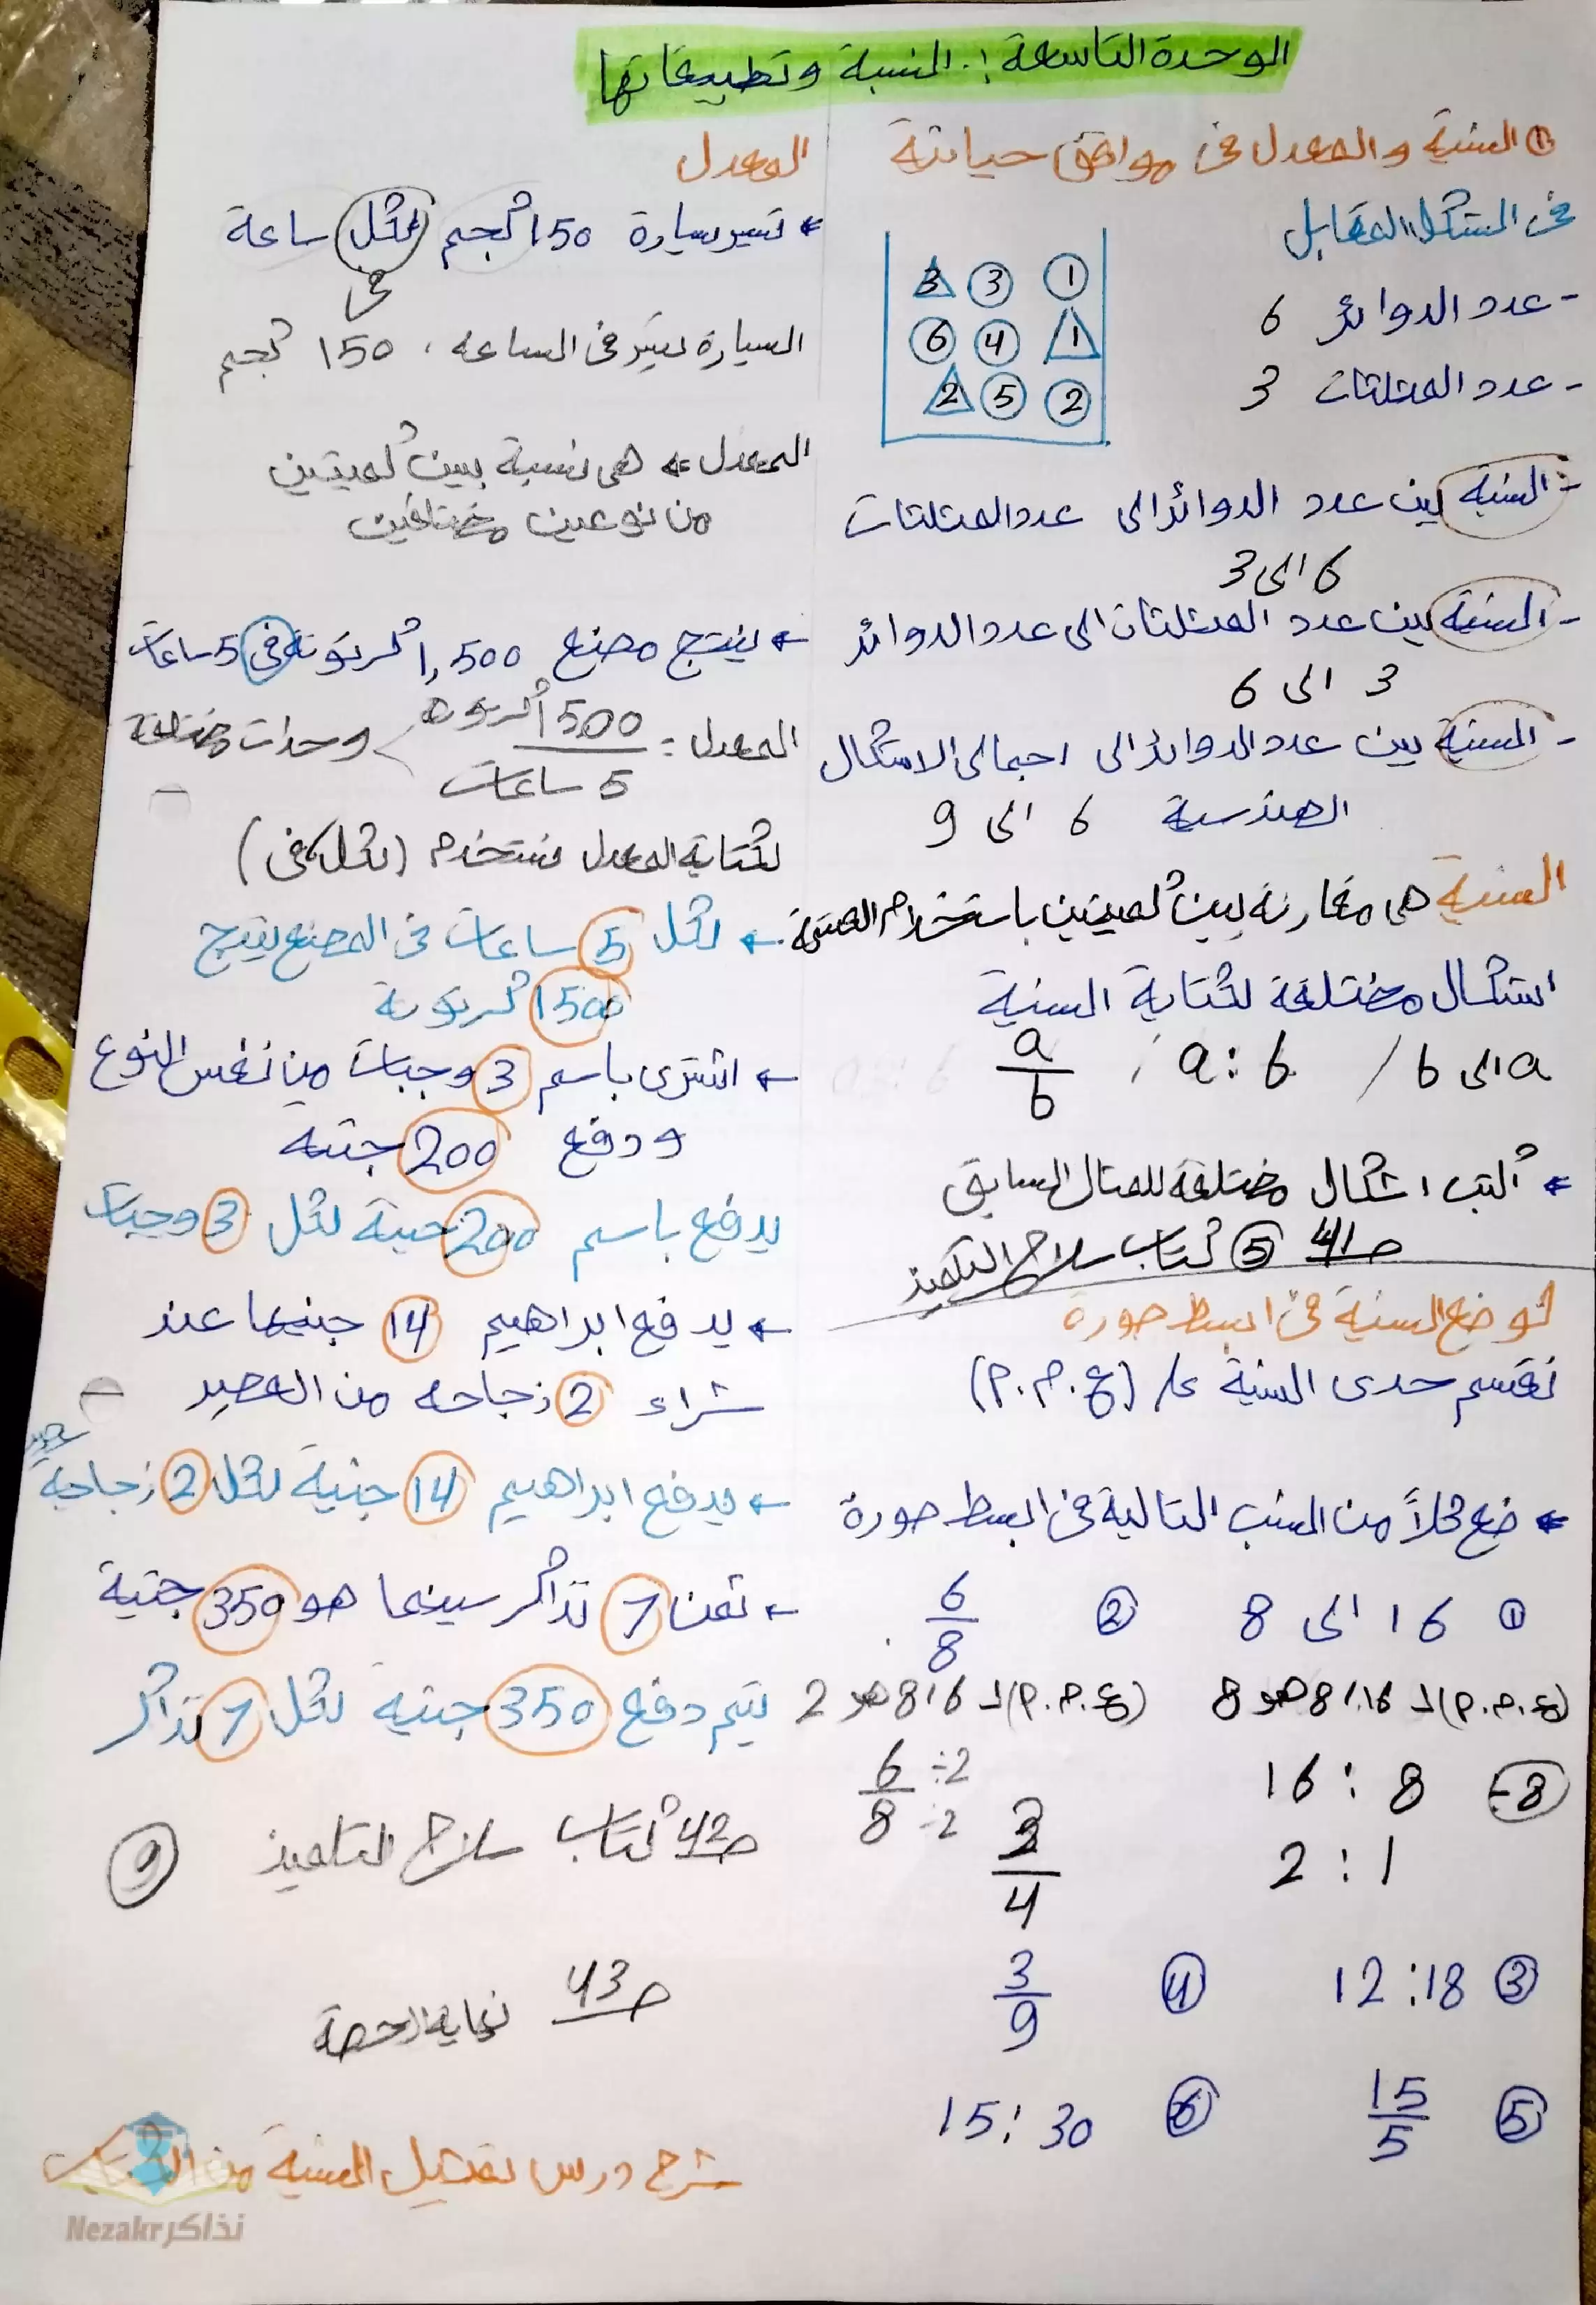 الوحدة التاسعة : النسبة وتطبيقاتها
① النسبة والمعدل فى مواقف حياتية
فى الشكل المقابل
- عدد الدوائر 6
- عدد المثلثات 3
3 3 1
6 4 1
2 5 2
- النسبة بين عدد الدوائر الى عدد المثلثات
6 الى 3
- النسبة بين عدد المثلثات الى عدد الدوائر
3 الى 6
- النسبة بين عدد الدوائر الى اجمالى الاشكال
الهندسية 6 الى 9
النسبة هى مقارنة بين كميتين باستخدام القسمة
اشكال مختلفة لكتابة النسبة
a الى b / a : b , a/b
← اكتب اشكال مختلفة للمثال السابق
صـ 41 ⑤ كتاب سلاح التلميذ
لوضع النسبة فى ابسط صورة
نقسم حدى النسبة على (ع.م.م)
← ضع كلاً من النسب التالية فى ابسط صورة
① 16 الى 8
② 6/8
(ع.م.م) لـ 16، 8 هو 8
(ع.م.م) لـ 6، 8 هو 2
16 : 8 ÷8
2 : 1
6 ÷2 / 8 ÷2
3/4
③ 12 : 18
④ 3/9
⑤ 15/5
⑥ 15 : 30
المعدل
← تسير سيارة 150 كجم لكل ساعة
فى
السيارة تسير فى الساعه ، 150 كجم
المعدل ← هى نسبة بين كميتين
من نوعين مختلفين
← ينتج مصنع 1,500 كرتونة فى 5 ساعات
المعدل = 1500 كرتونة / 5 ساعات > وحدات مختلفة
لكتابة المعدل نستخدم (لكل، فى)
← لكل 5 ساعات فى المصنع ينتج
1500 كرتونة
← اشترى باسم 3 وجبات من نفس النوع
ودفع 200 جنيه
يدفع باسم 200 جنية لكل 3 وجبات
← يدفع ابراهيم 14 جنيها عند
شراء 2 زجاجه من العصير
← يدفع ابراهيم 14 جنية لكل 2 زجاجة
عصير
← ثمن 7 تذاكر سينما هو 350 جنية
يتم دفع 350 جنية لكل 7 تذاكر
صـ 42 كتاب سلاح التلميذ ⑨
صـ 43 نهاية الحصة
شرح درس تمثيل النسبة من الكتاب
Nezakr نذاكر